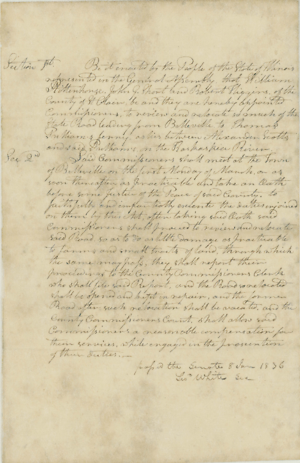 Section 1st Be it enacted by the People of the State of Illinois
represented in the General Assembly that William
John S. and Robert of the
County of St Clair be and they are hereby appointed
Commissioners to review and relocate so much of the
State Road leading from Belleville to
ferry, as lies between Alexander
and said on the Kaskaskia River
Sec. 2d Said Commissioners shall meet at the Town
of Belleville on the first Monday of March or as
soon thereafter as practicable and take an Oath
before some Justice of the Peace of said County to
faithfully and impartially execute the duties enjoined
on them by this Act, after taking said Oath said
Commissioners shall proceed to review and relocate
said Road so as to do as little damage as practicable
to farms and small tracts of land, through which
the same may pass, they shall report their
proceedings to the County Commissioners Clerk
who shall file said Report, and the Road so relocated
shall be opened and kept in repair, and the
Road after such relocation shall be vacated, and the
County Commissioners Court, shall allow said
Commissioners a reasonable compensation for
their services, while engaged in the prosecution
of their duties.
passd the Senate 8 Jan 1836
Leo White Sec